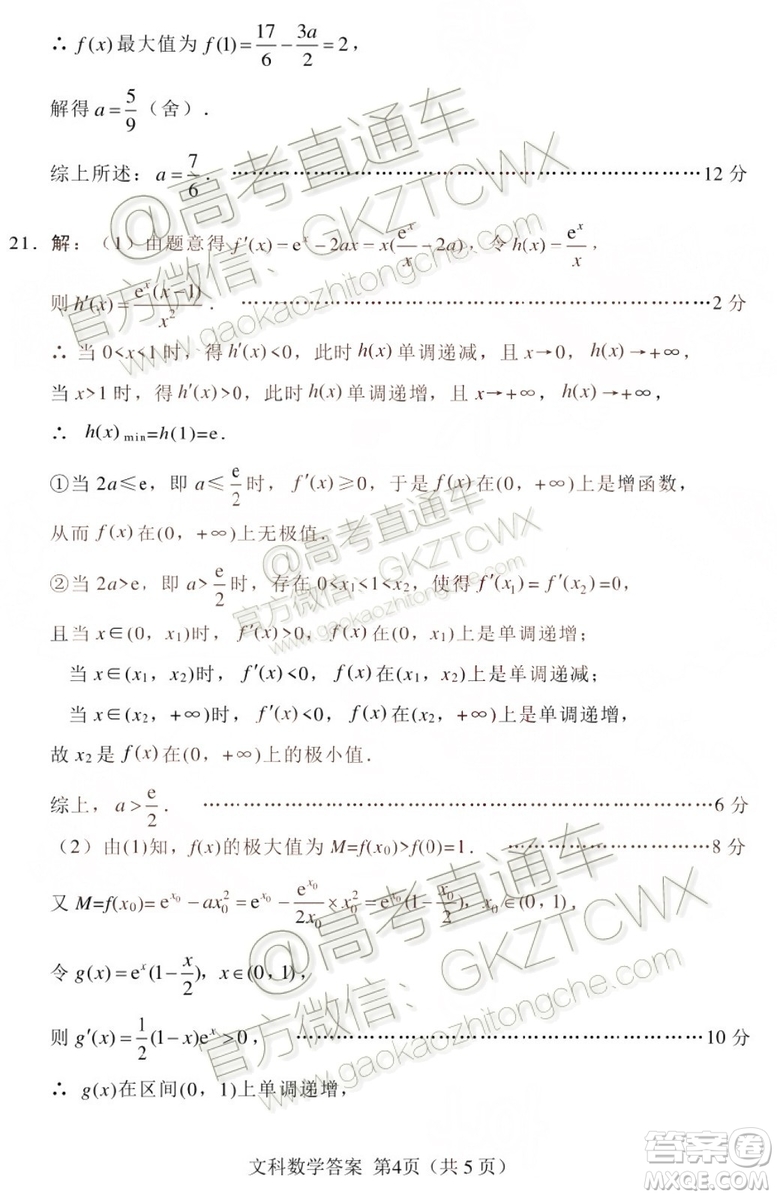 ∴ f(x)最大值为 f(1)=17/6−3a/2=2，
解得 a=5/9（舍）．
综上所述：a=7/6． ……………………………………………………12 分
21．解：（1）由题意得 f′(x)=eˣ−2ax=x(eˣ/x−2a)，令 h(x)=eˣ/x，
则 h′(x)=eˣ(x−1)/x²． ……………………………………………………2 分
∴ 当 0<x<1 时，得 h′(x)<0，此时 h(x)单调递减，且 x→0，h(x)→+∞，
当 x>1 时，得 h′(x)>0，此时 h(x)单调递增，且 x→+∞，h(x)→+∞，
∴ h(x)min=h(1)=e．
①当 2a≤e，即 a≤e/2 时，f′(x)≥0，于是 f(x)在(0，+∞)上是增函数，
从而 f(x)在(0，+∞)上无极值．
②当 2a>e，即 a>e/2 时，存在 0<x₁<1<x₂，使得 f′(x₁)=f′(x₂)=0，
且当 x∈(0，x₁)时，f′(x)>0，f(x)在(0，x₁)上是单调递增；
当 x∈(x₁，x₂)时，f′(x)<0，f(x)在(x₁，x₂)上是单调递减；
当 x∈(x₂，+∞)时，f′(x)<0，f(x)在(x₂，+∞)上是单调递增，
故 x₂ 是 f(x)在(0，+∞)上的极小值．
综上，a>e/2． ……………………………………………………6 分
（2）由(1)知，f(x)的极大值为 M=f(x₀)>f(0)=1． ………………………8 分
又 M=f(x₀)=e^{x₀}−ax₀²=e^{x₀}−e^{x₀}/(2x₀)×x₀²=e^{x₀}(1−x₀/2)，x₀∈(0，1)，
令 g(x)=eˣ(1−x/2)，x∈(0，1)，
则 g′(x)=1/2(1−x)eˣ>0， ……………………………………………………10 分
∴ g(x)在区间(0，1)上单调递增，
文科数学答案 第4页（共 5 页）
@高考直通车
官方微信：GKZTCWX
www.gaokaozhitongche.com
@高考直通车
官方微信：GKZTCWX
www.gaokaozhitongche.com
@高考直通车
官方微信：GKZTCWX
www.gaokaozhitongche.com
答案圈
MXQE.COM